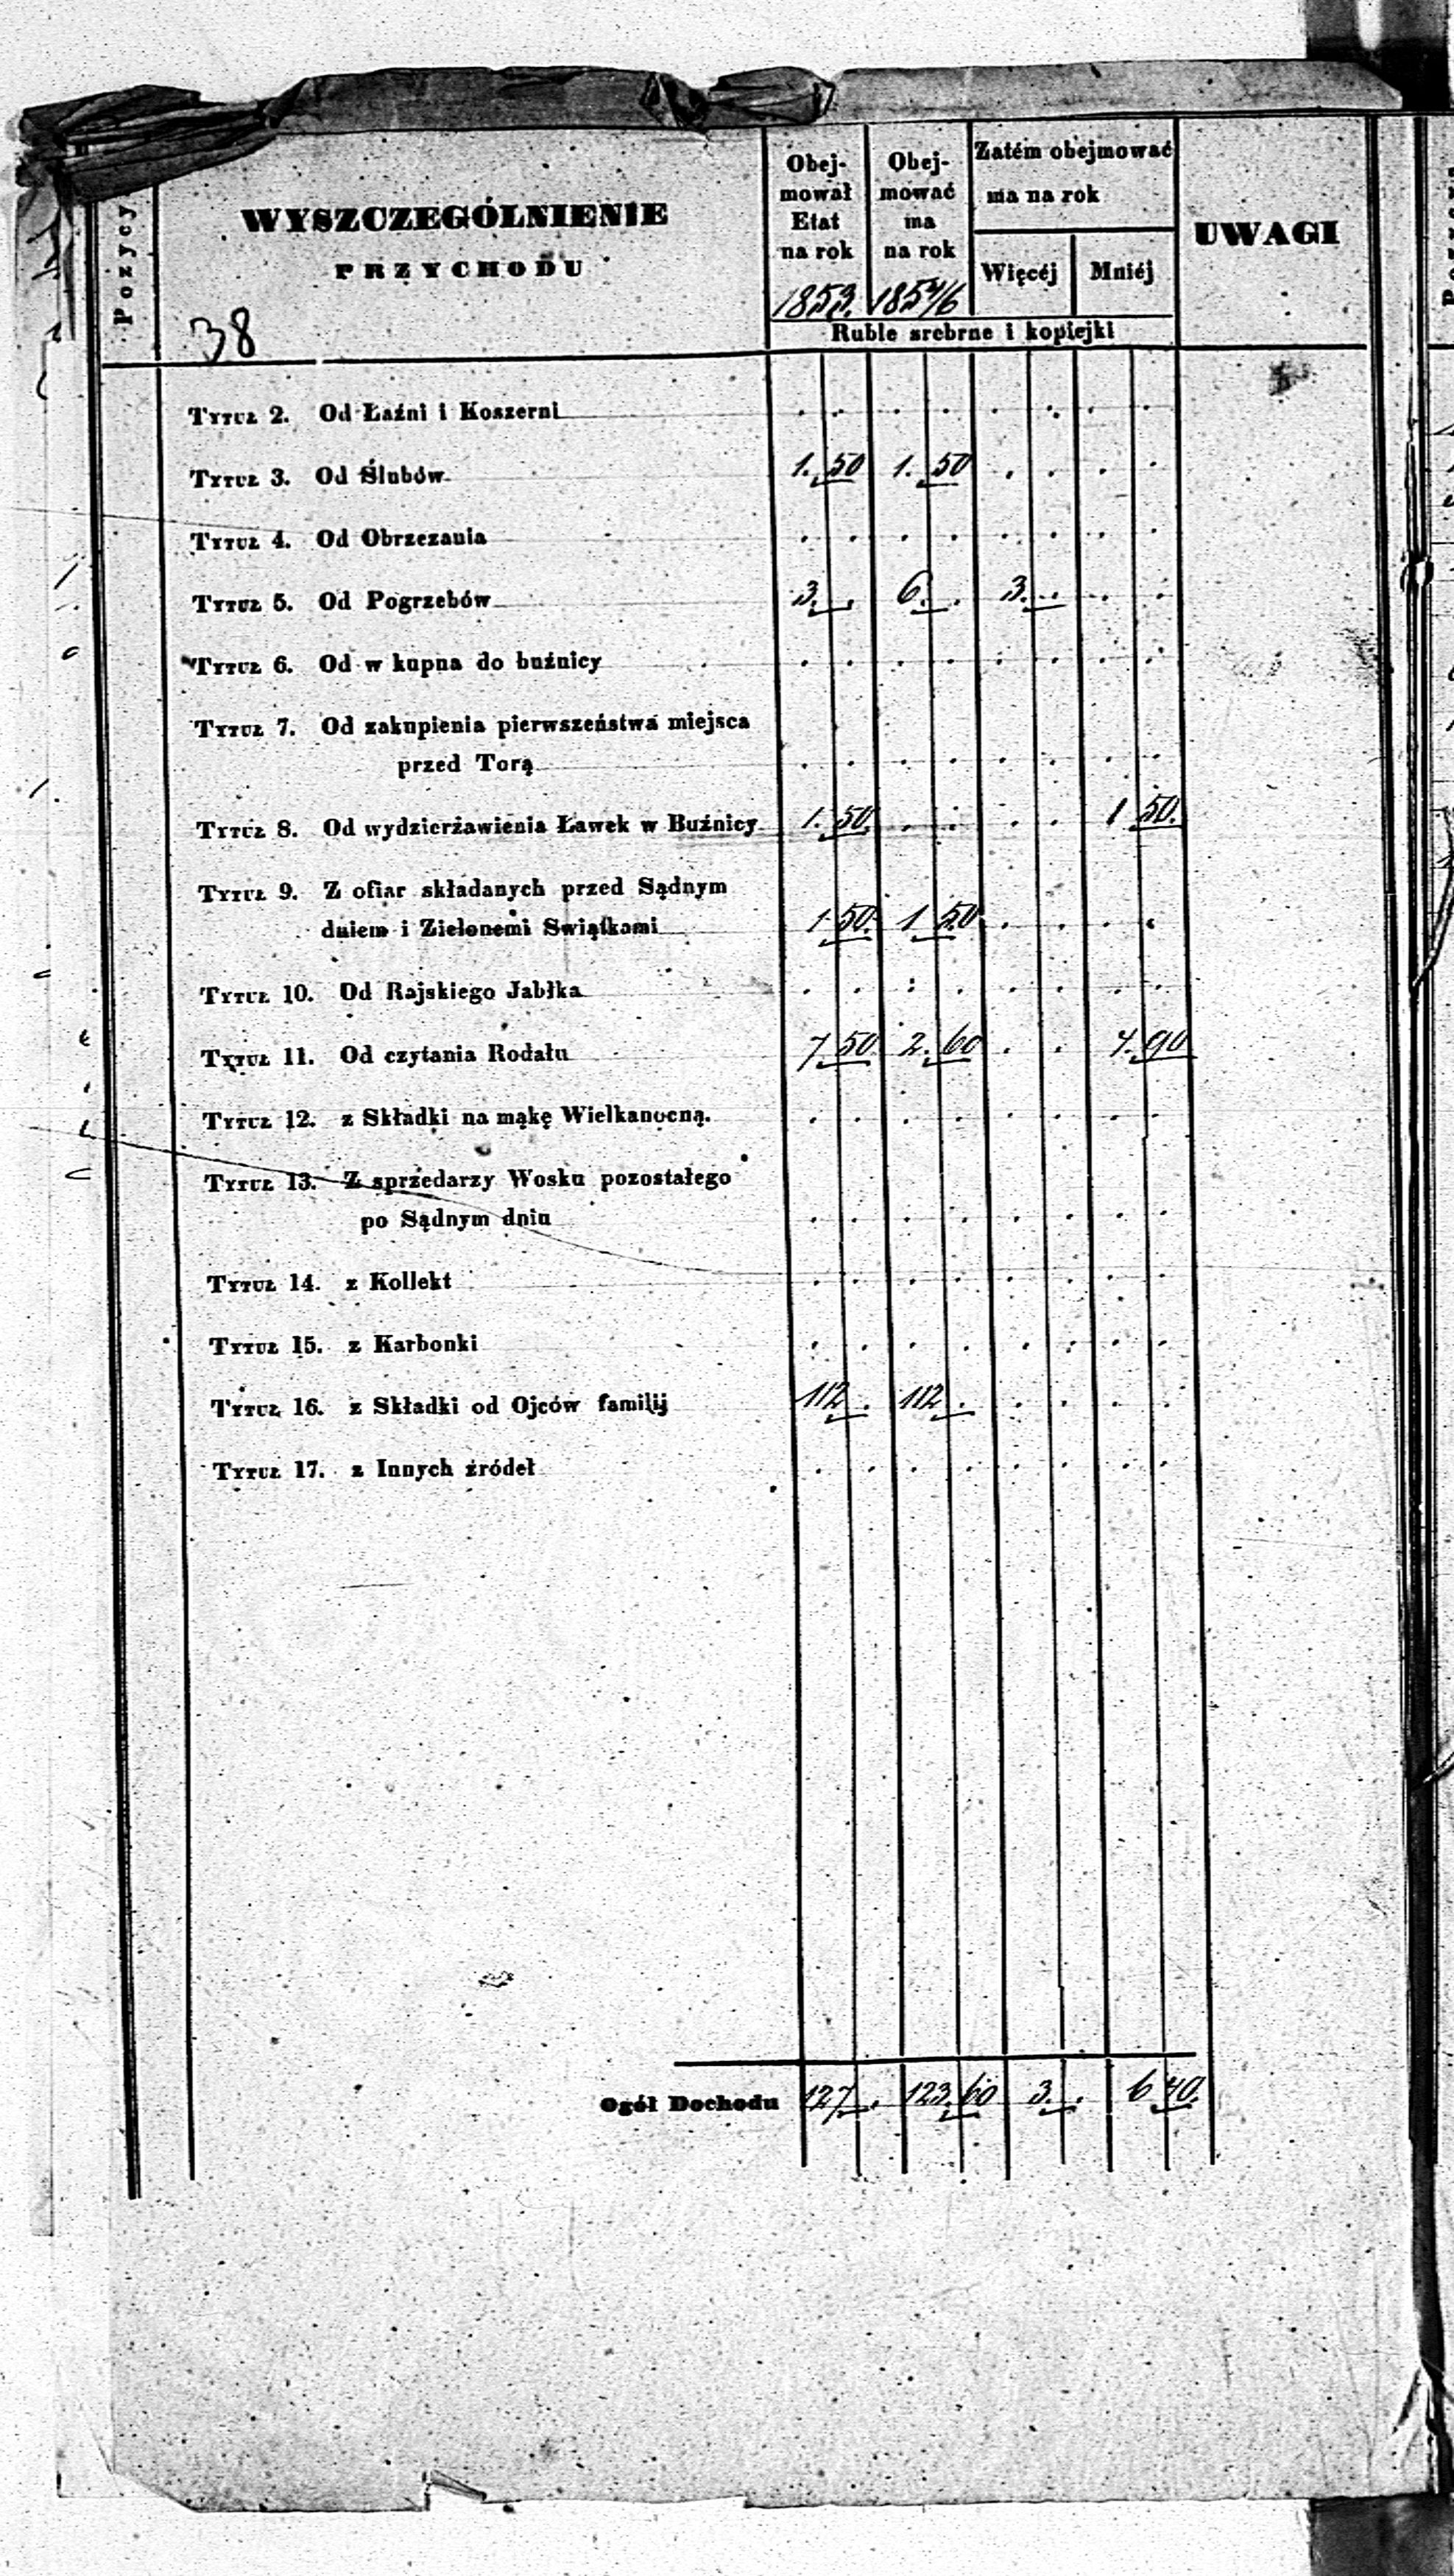 Pozycy
WYSZCZEGÓLNIENIE
PRZYCHODU
38
Obej-
mował
Etat
na rok
1853.
Obej-
mować
ma
na rok
1854/6
Zatém obejmować
ma na rok
Więcéj
Mniéj
Ruble srebrne i kopiejki
UWAGI
TYTUŁ 2. Od Łaźni i Koszerni
TYTUŁ 3. Od Ślubów 1. 50 1. 50
TYTUŁ 4. Od Obrzezania
TYTUŁ 5. Od Pogrzebów 3. 6. 3.
TYTUŁ 6. Od w kupna do buźnicy
TYTUŁ 7. Od zakupienia pierwszeństwa miejsca
przed Torą
TYTUŁ 8. Od wydzierżawienia Ławek w Buźnicy 1. 50. 1 50.
TYTUŁ 9. Z ofiar składanych przed Sądnym
dniem i Zielonemi Swiątkami 1. 50. 1 50.
TYTUŁ 10. Od Rajskiego Jabłka
TYTUŁ 11. Od czytania Rodału 7. 50. 2. 60 4. 90
TYTUŁ 12. z Składki na mąkę Wielkanocną.
TYTUŁ 13. Z sprzedarzy Wosku pozostałego
po Sądnym dniu
TYTUŁ 14. z Kollekt
TYTUŁ 15. z Karbonki
TYTUŁ 16. z Składki od Ojców familij 112 . 112 .
TYTUŁ 17. z Innych źródeł
Ogół Dochodu 127 . 123. 60 3. . 6 40.